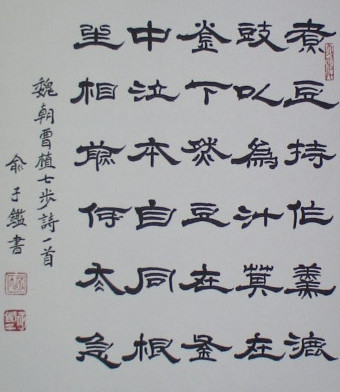 煮豆持作羹漉
豉以為汁萁在
釜下然豆在釜
中泣本自同根
生相煎何太急
魏朝曹植七步詩一首
俞子鑑書